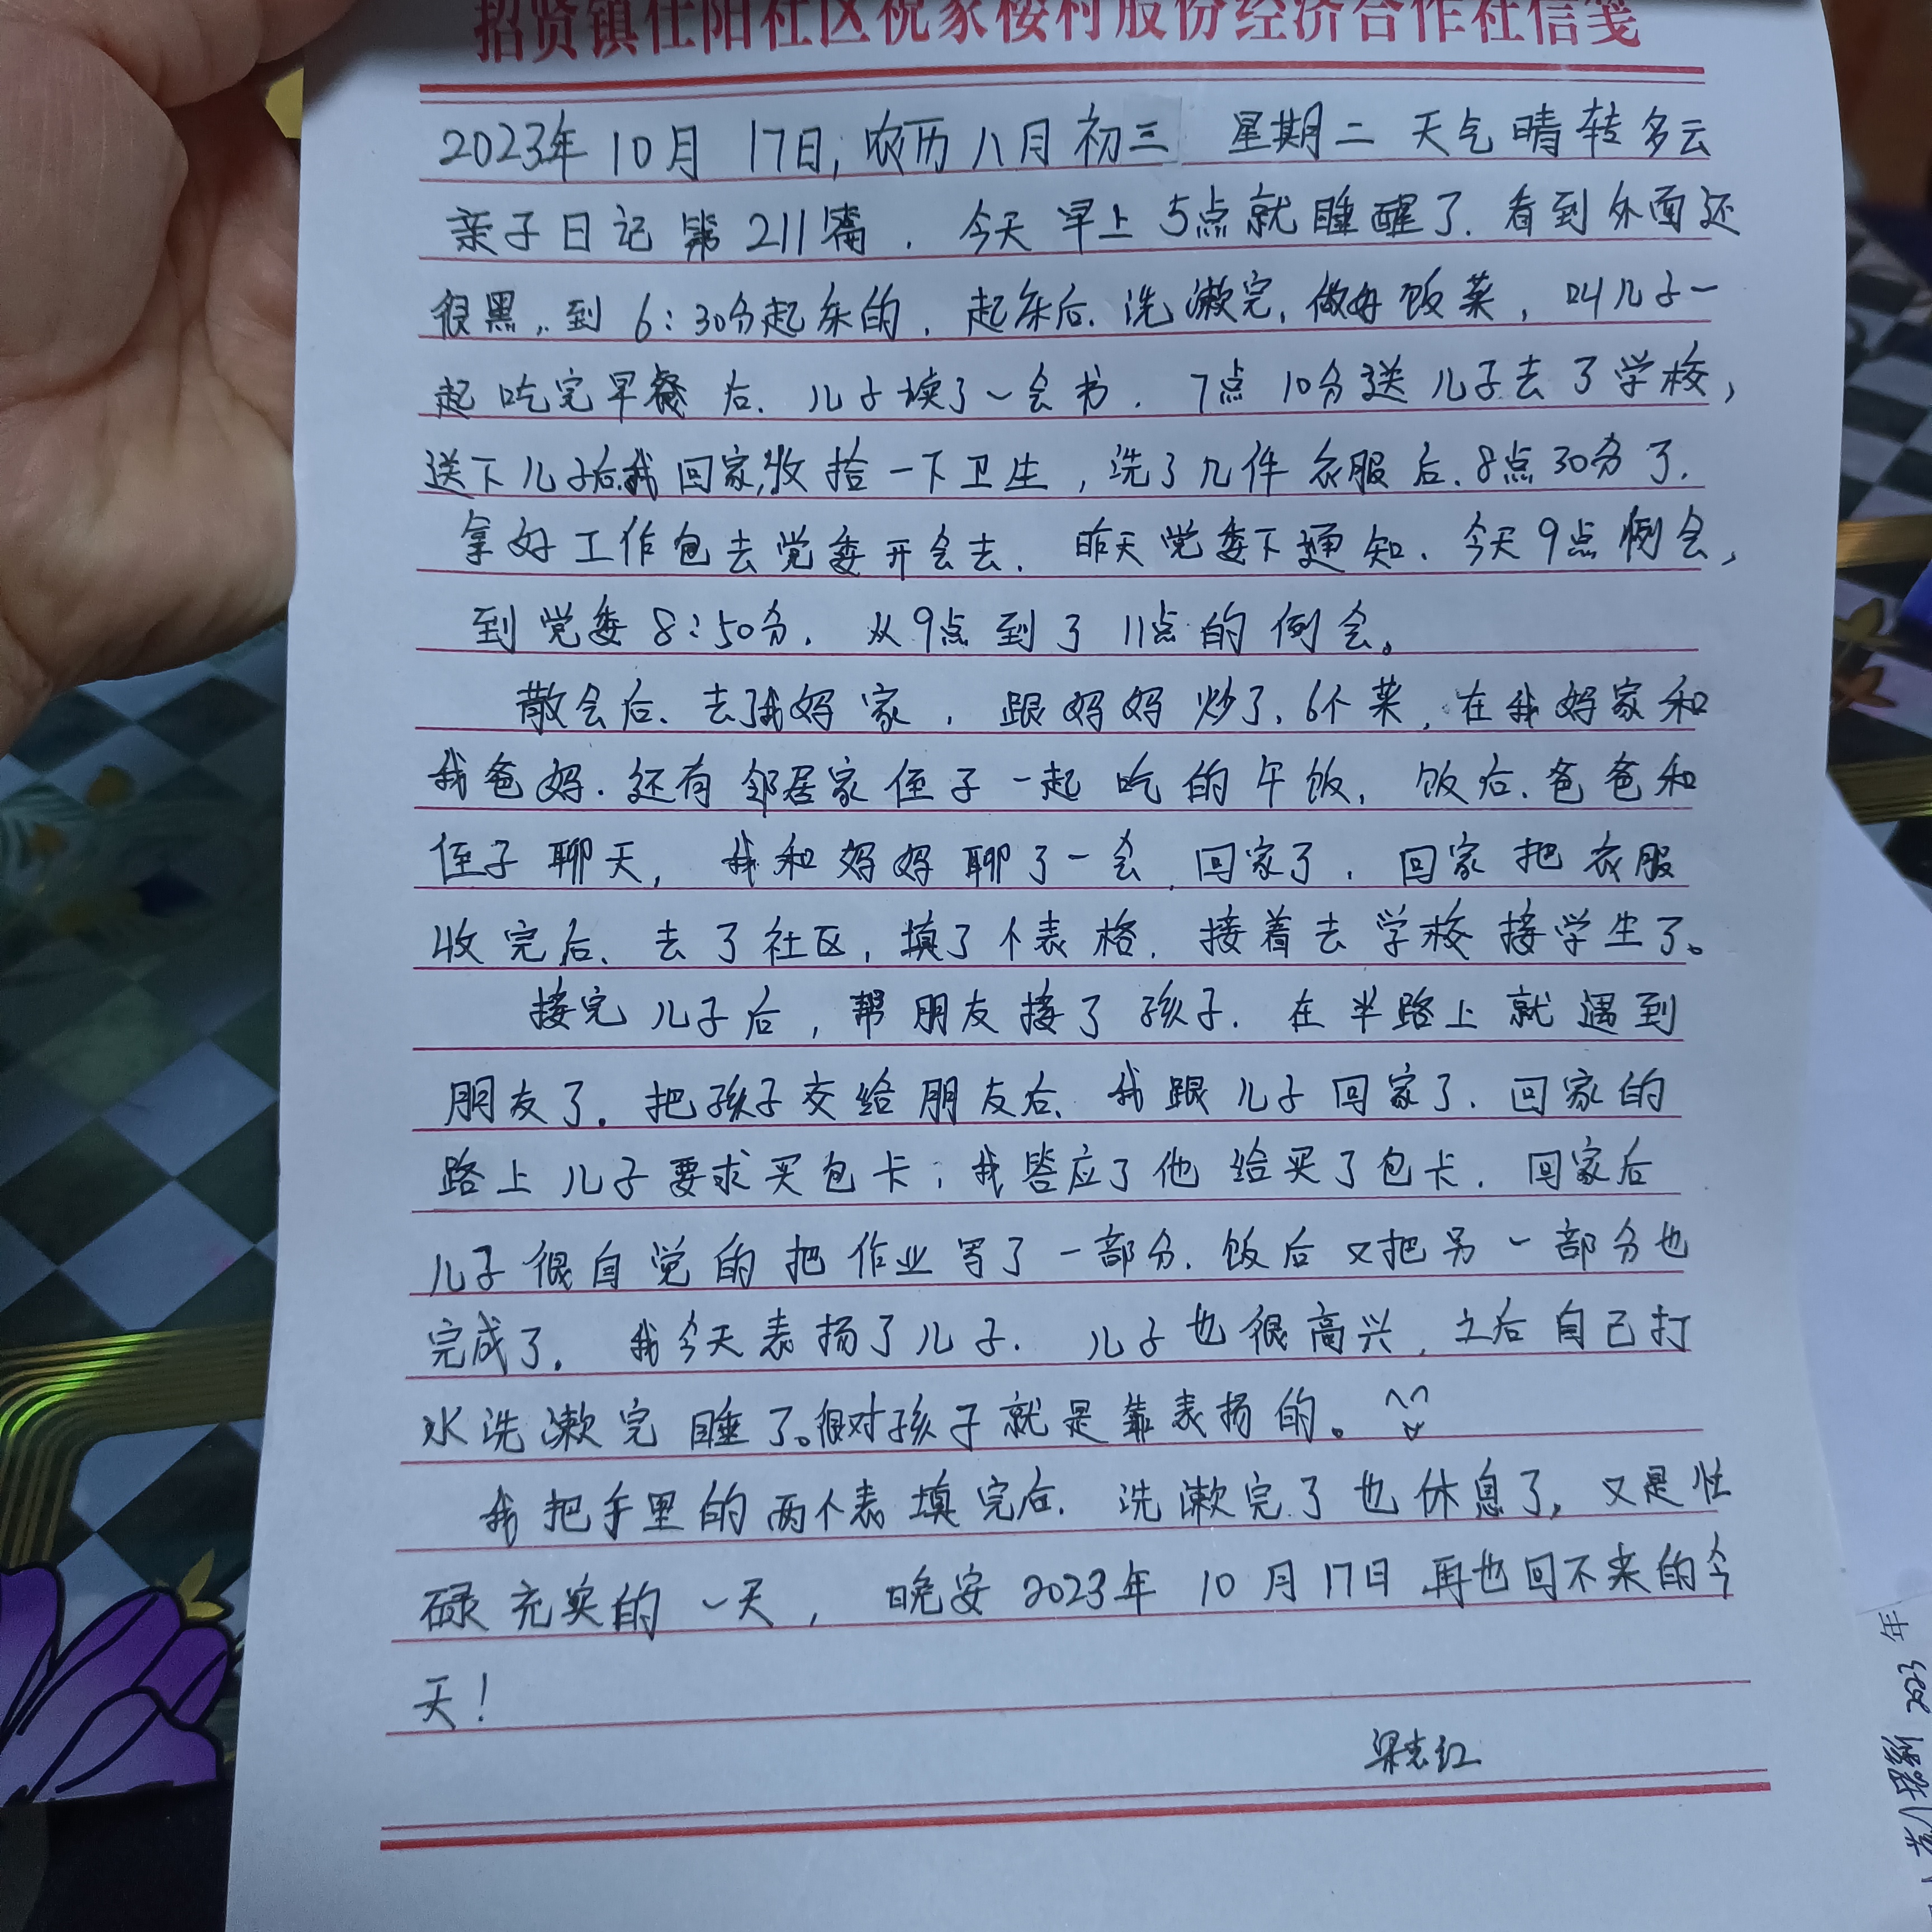 招贤镇仕阳社区祝家楼村股份经济合作社信笺
2023年10月17日,农历八月初三 星期二 天气晴转多云
亲子日记第211篇.今天早上5点就睡醒了.看到外面还
很黑..到6:30分起床的.起床后.洗漱完,做好饭菜,叫儿子一
起吃完早餐后.儿子读了一会书.7点10分送儿子去了学校,
送下儿子后.我回家,收拾一下卫生,洗了几件衣服后.8点30分了.
拿好工作包去党委开会去.昨天党委下通知.今天9点例会,
到党委8:50分.从9点到了11点的例会。
散会后、去了我妈家,跟妈妈炒了、6个菜,在我妈家和
我爸妈.还有邻居家侄子一起吃的午饭,饭后.爸爸和
侄子聊天,我和妈妈聊了一会.回家了.回家把衣服
收完后、去了社区,填了个表格.接着去学校接学生了。
接完儿子后,帮朋友接了孩子.在半路上就遇到
朋友了。把孩子交给朋友后、我跟儿子回家了.回家的
路上儿子要求买包卡;我答应了他给买了包卡.回家后
儿子很自觉的把作业写了一部分.饭后又把另一部分也
完成了。我今天表扬了儿子.儿子也很高兴,之后自己打
水洗漱完睡了。很对孩子就是靠表扬的。
我把手里的两个表填完后.洗漱完了也休息了,又是忙
碌充实的一天,晚安2023年10月17日再也回不来的今
天!
梁志红
2023年